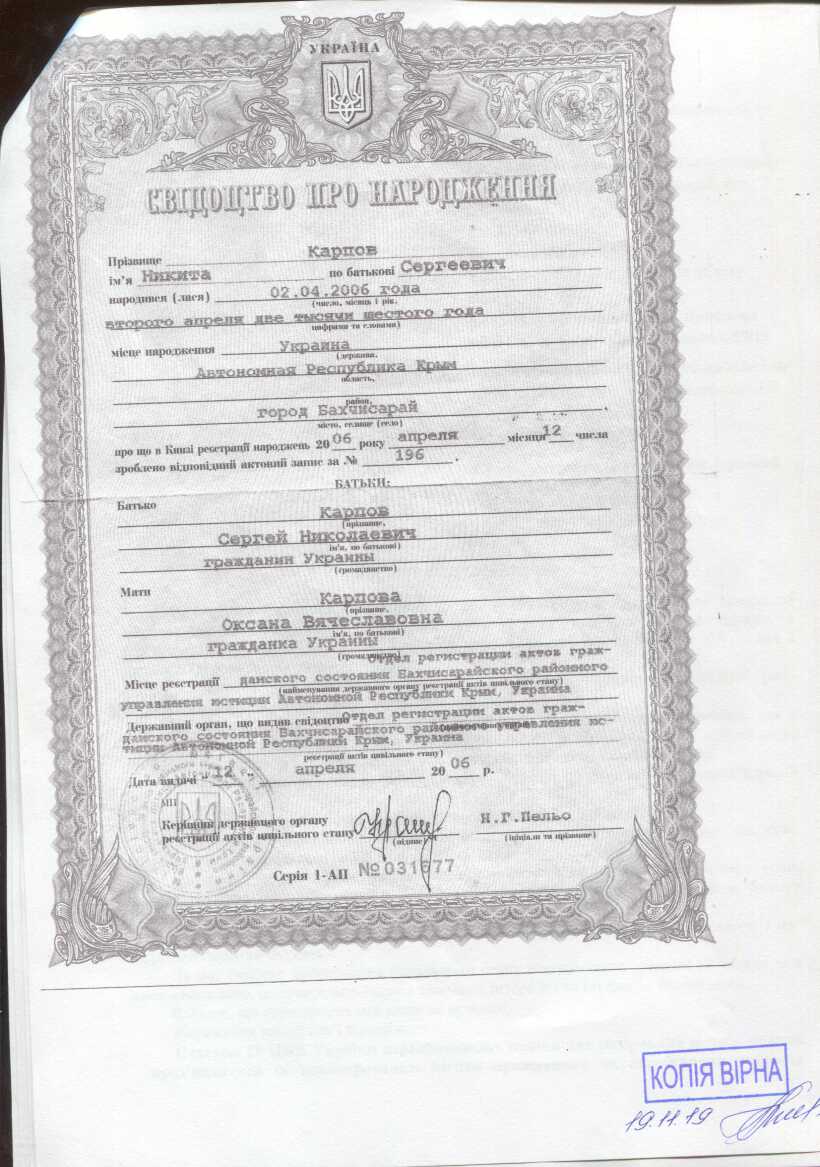 УКРАЇНА
СВІДОЦТВО ПРО НАРОДЖЕННЯ
Прізвище Карпов
ім'я Никита по батькові Сергеевич
народився (лася) 02.04.2006 года
(число, місяць і рік,
второго апреля две тысячи шестого года
цифрами та словами)
місце народження Украина
(держава,
Автономная Республика Крым
область,
район,
город Бахчисарай
місто, селище (село)
про що в Книзі реєстрації народжень 2006 року апреля місяця 12 числа
зроблено відповідний актовий запис за № 196 .
БАТЬКИ:
Батько
Карпов
(прізвище,
Сергей Николаевич
ім'я, по батькові)
гражданин Украины
(громадянство)
Мати
Карпова
(прізвище,
Оксана Вячеславовна
ім'я, по батькові)
гражданка Украины
(громадянство)
Отдел регистрации актов граж-
Місце реєстрації данского состояния Бахчисарайского районного
(найменування державного органу реєстрації актів цивільного стану)
управления юстиции Автономной Республики Крым, Украина
Державний орган, що видав свідоцтво Отдел регистрации актов граж-
данского состояния Бахчисарайского районного управления юс-
тиции Автономной Республики Крым, Украина
реєстрації актів цивільного стану)
Дата видачі " 12 " апреля 20 06 р.
МП
Керівник державного органу
реєстрації актів цивільного стану
(підпис)
Н.Г.Пельо
(ініціали та прізвище)
Серія 1-АП №031677
КОПІЯ ВІРНА
19.11.19